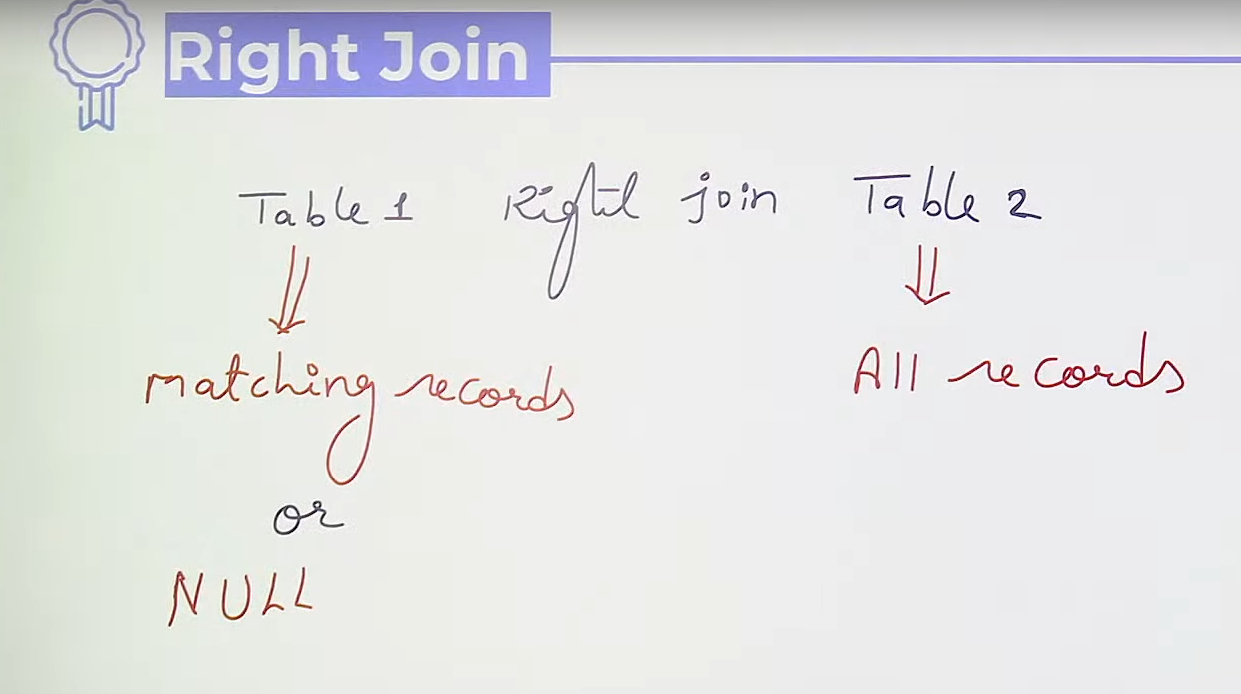 Right Join
Table 1 Right join Table 2
matching records All records
or
NULL